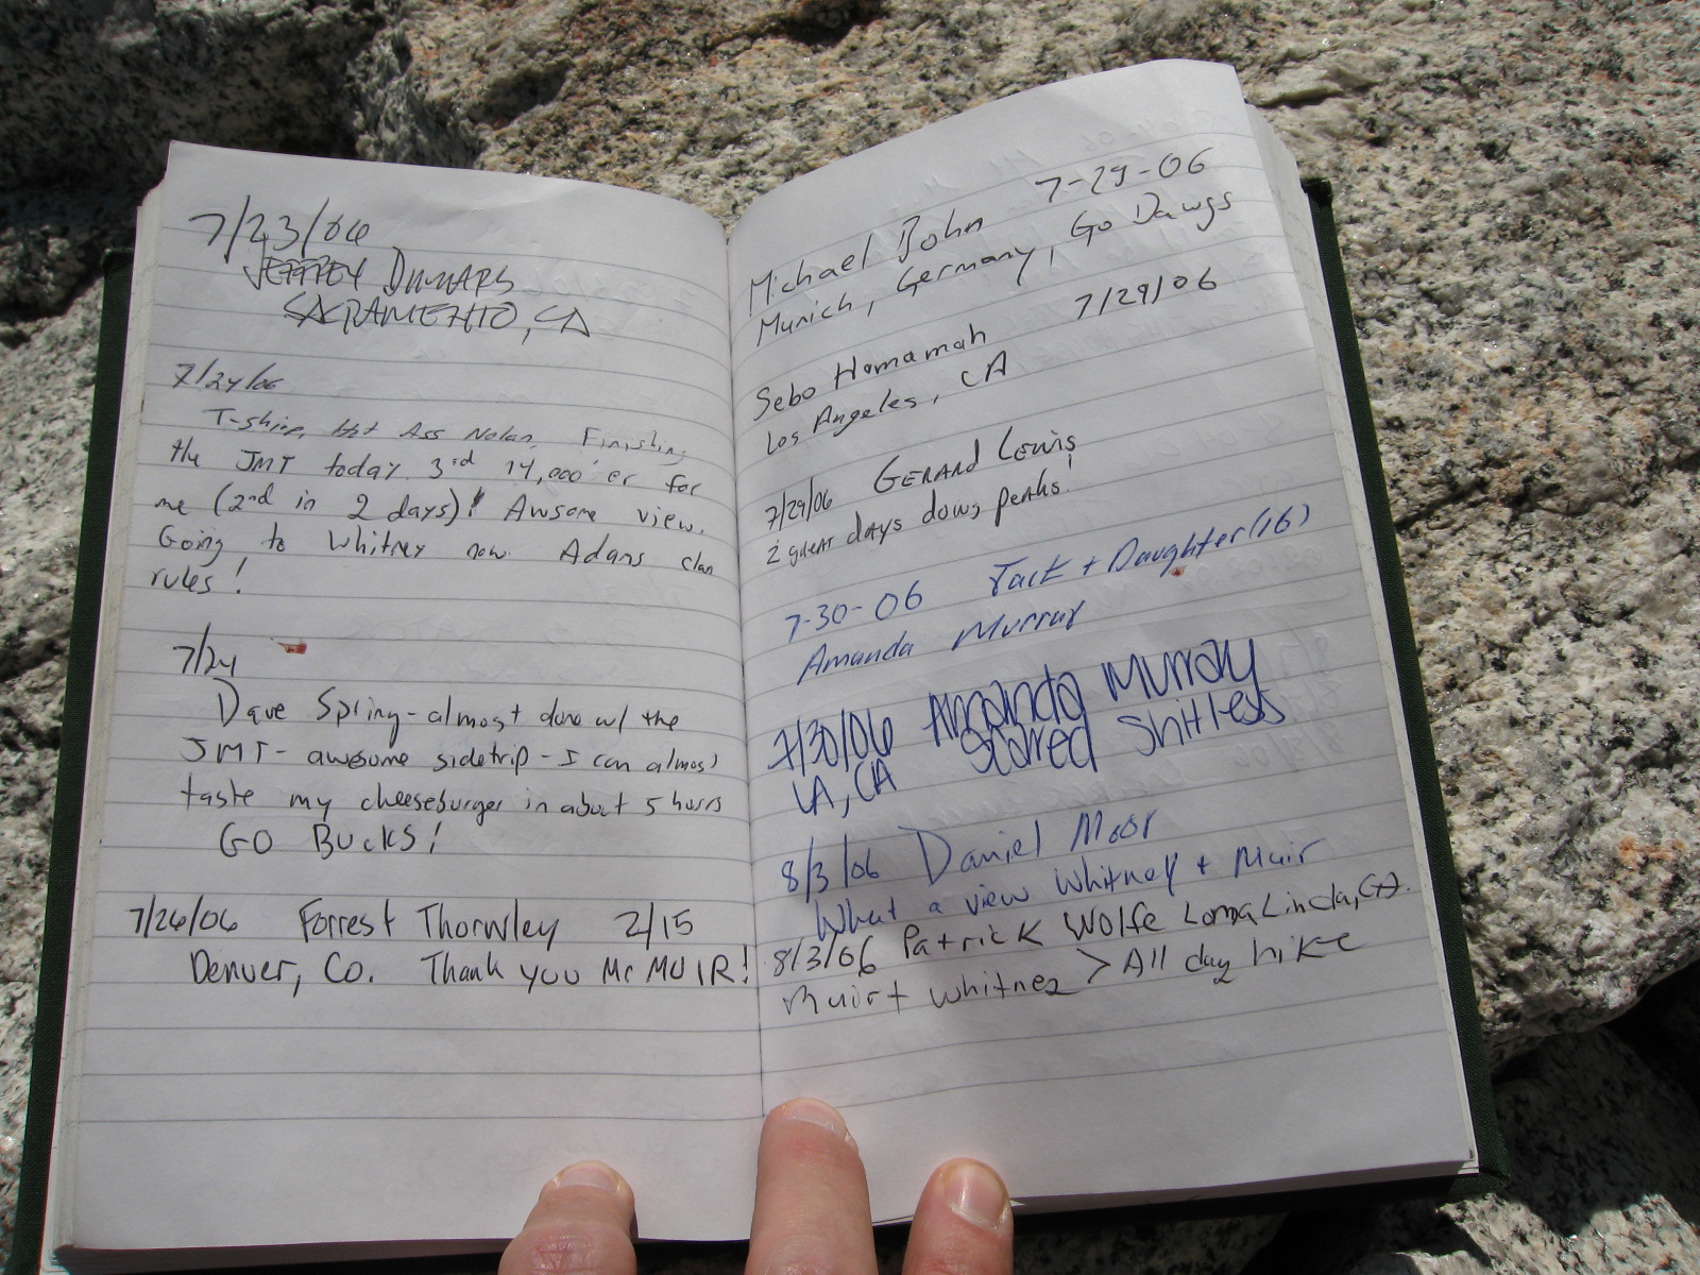 7/23/06
JEFFREY DUMARS
SACRAMENTO, CA
7/24/06
Hot Ass Nolan. Finishing
the JMT today. 3rd 14,000'er for
me (2nd in 2 days)! Awsome view.
Going to Whitney now. Adams clan
rules!
7/24
Dave Spring - almost done w/ the
JMT - awesome sidetrip - I can almost
taste my cheeseburger in about 5 hours
GO BUCKS!
7/26/06 Forrest Thornley 2/15
Denver, Co. Thank you Mr MUIR!
Michael Bohn 7-29-06
Munich, Germany, Go Dawgs
Sebo Hamamah 7/29/06
Los Angeles, CA
7/29/06 GERARD LEWIS
2 great days doing peaks!
7-30-06 Jack + Daughter (16)
Amanda Murray
7/30/06 Amanda Murray
LA, CA Scared Shitless
8/3/06 Daniel Moor
What a view Whitney + Muir
8/3/06 Patrick Wolfe Loma Linda, CA.
Muir + Whitney > All day hike